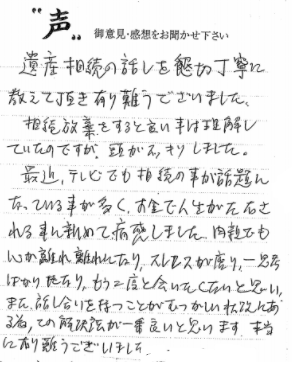 "声" 御意見・感想をお聞かせ下さい
遺産相続の話しを懇切丁寧に
教えて頂き有り難うございました。
相続放棄をすると言い事は理解し
ていたのですが、頭がスッキリしました。
最近、テレビでも相続の事が話題に
なっている事が多く、お金で人生が左右さ
れる事に初めて痛感しました。肉親でも
心が離れ離れになり、ストレスが溜り、一
ばかりたなり、もう二度と会いたくないと思い、
また、話し合いを持つことがむつかしい状況にあ
る為、この解決法が一番良いと思います。本当
に有り難うございました。